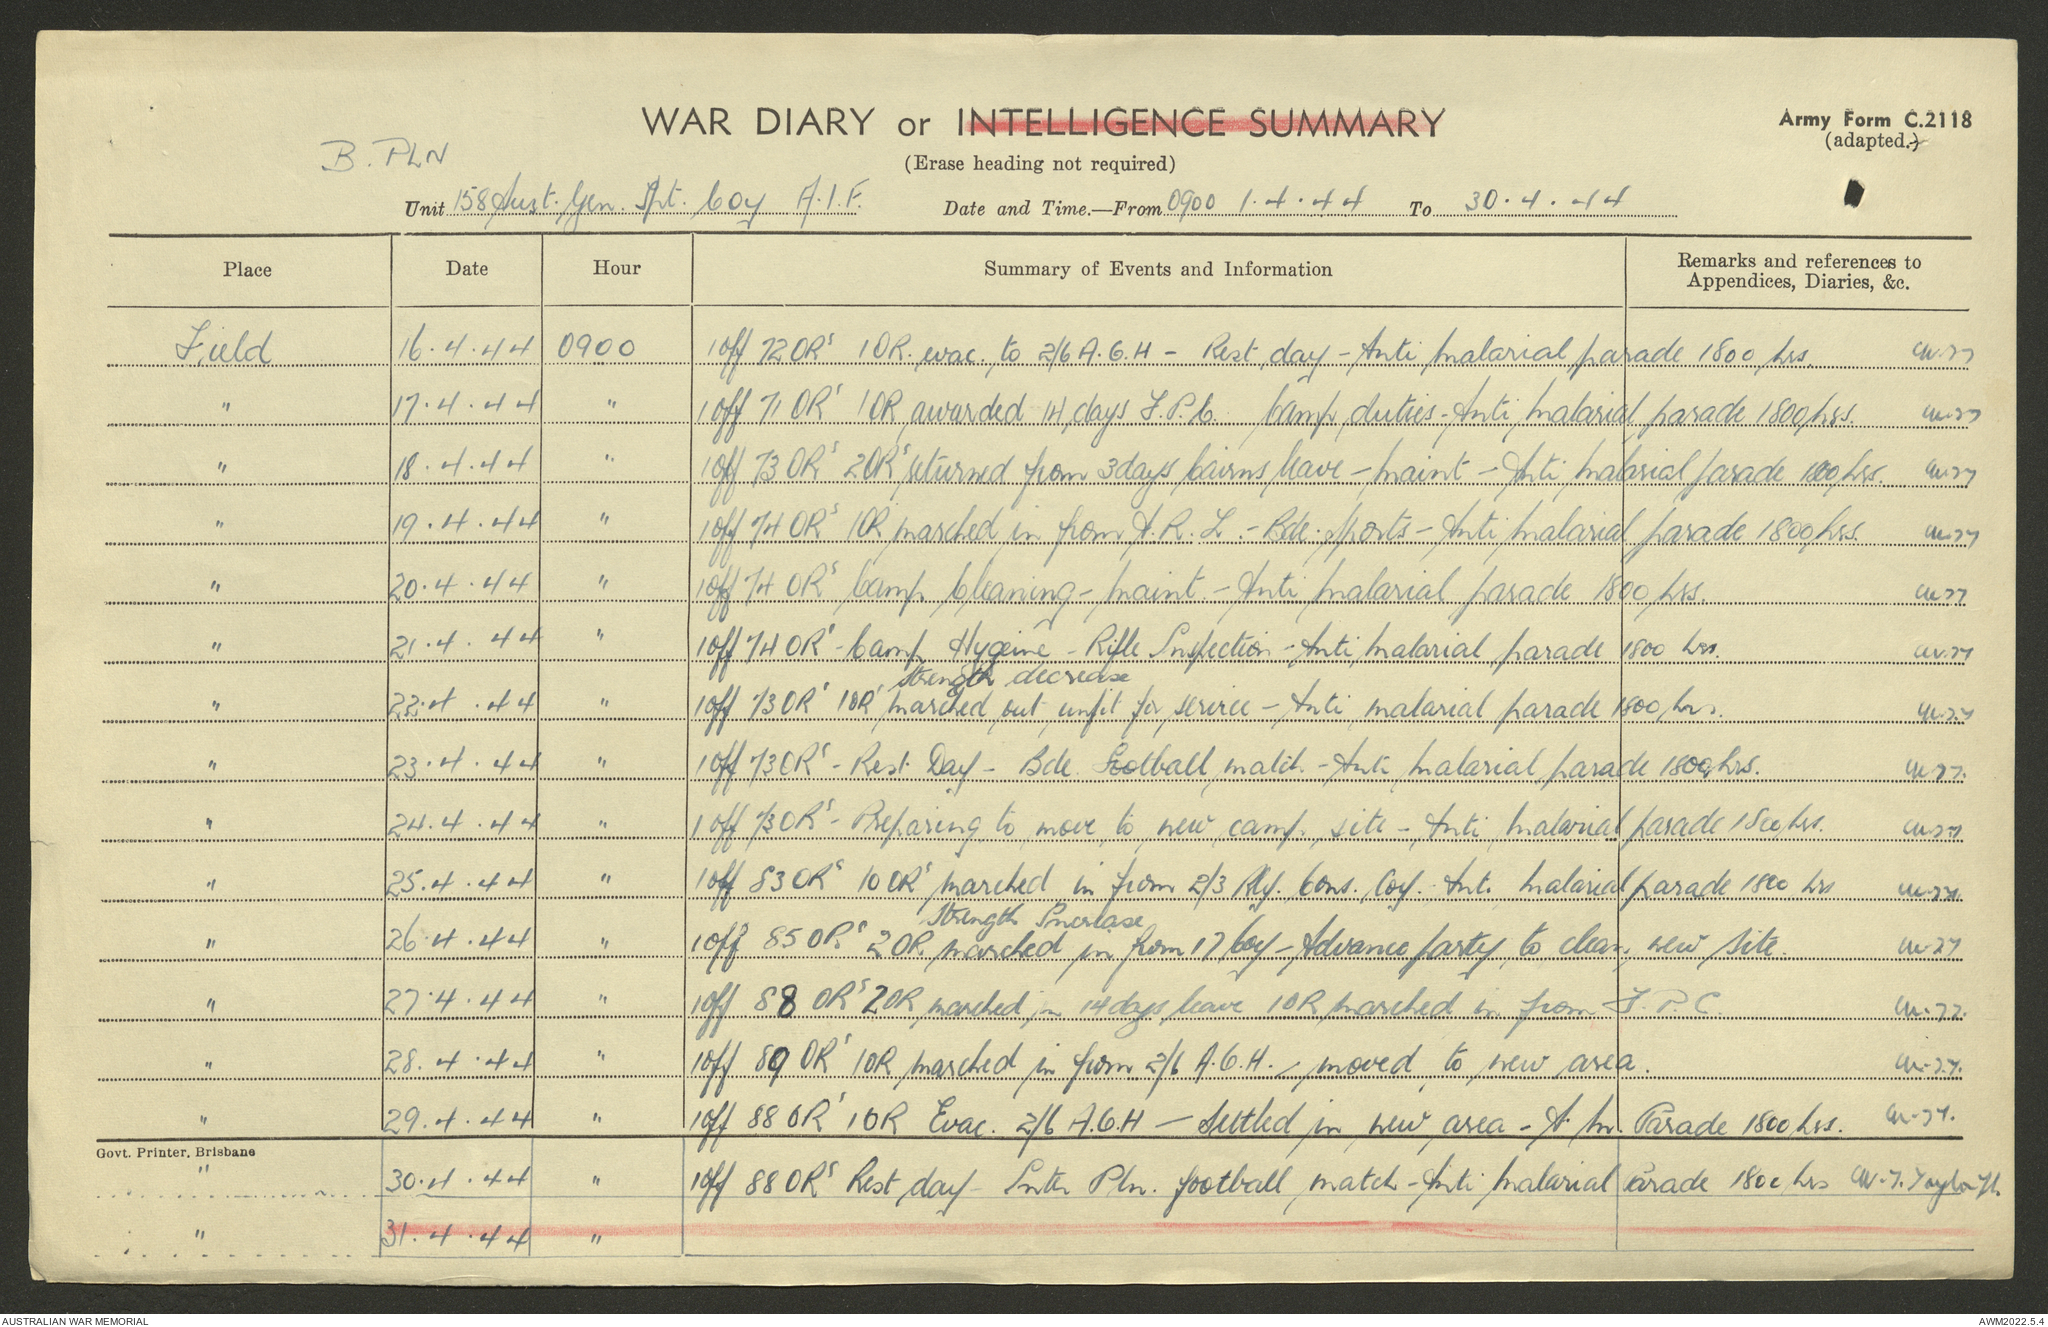 WAR DIARY or INTELLIGENCE SUMMARY
Army Form C.2118
(adapted.)
(Erase heading not required)
B. PLN
Unit 158 Aust. Gen. Tpt. Coy A.I.F. Date and Time.—From 0900 1.4.44 To 30.4.44
Place Date Hour Summary of Events and Information Remarks and references to Appendices, Diaries, &c.
Field 16.4.44 0900 1 Off 72 ORs 1 OR. evac. to 2/6 A.G.H - Rest day - Anti Malarial parade 1800 hrs.
" 17.4.44 " 1 Off 71 ORs 1 OR awarded 14 days F.P.C. Camp duties - Anti Malarial parade 1800 hrs.
" 18.4.44 " 1 Off 73 ORs 2 ORs returned from 3 days Cairns leave - Maint - Anti Malarial parade 1800 hrs.
" 19.4.44 " 1 Off 74 ORs 1 OR marched in from A.R.L. - Bde. Sports - Anti Malarial parade 1800 hrs.
" 20.4.44 " 1 Off 74 ORs Camp Cleaning - Maint - Anti Malarial parade 1800 hrs.
" 21.4.44 " 1 Off 74 ORs - Camp Hygeine - Rifle Inspection - Anti Malarial parade 1800 hrs.
Strength decrease
" 22.4.44 " 1 Off 73 ORs 1 OR marched out unfit for service - Anti Malarial parade 1800 hrs.
" 23.4.44 " 1 Off 73 ORs - Rest Day - Bde. Football match - Anti Malarial parade 1800 hrs.
" 24.4.44 " 1 Off 73 ORs - Preparing to move to new camp site - Anti Malarial parade 1800 hrs.
" 25.4.44 " 1 Off 83 ORs 10 ORs marched in from 2/3 Rly. Cons. Coy. Ant. Malarial parade 1800 hrs
Strength Increase
" 26.4.44 " 1 Off 85 ORs 2 OR marched in from 17 Coy - Advance party to clean new site.
" 27.4.44 " 1 Off 88 ORs 2 OR marched in 14 days leave 1 OR marched in from F.P.C.
" 28.4.44 " 1 Off 89 ORs 1 OR marched in from 2/6 A.G.H. - moved to new area.
" 29.4.44 " 1 Off 88 ORs 1 OR Evac. 2/6 A.G.H - Settled in new area - A. M. Parade 1800 hrs.
Govt. Printer, Brisbane
" 30.4.44 " 1 Off 88 ORs Rest day - Inter Pln. football match - Anti Malarial Parade 1800 hrs
" 31.4.44 "
AUSTRALIAN WAR MEMORIAL
AWM2022.5.4